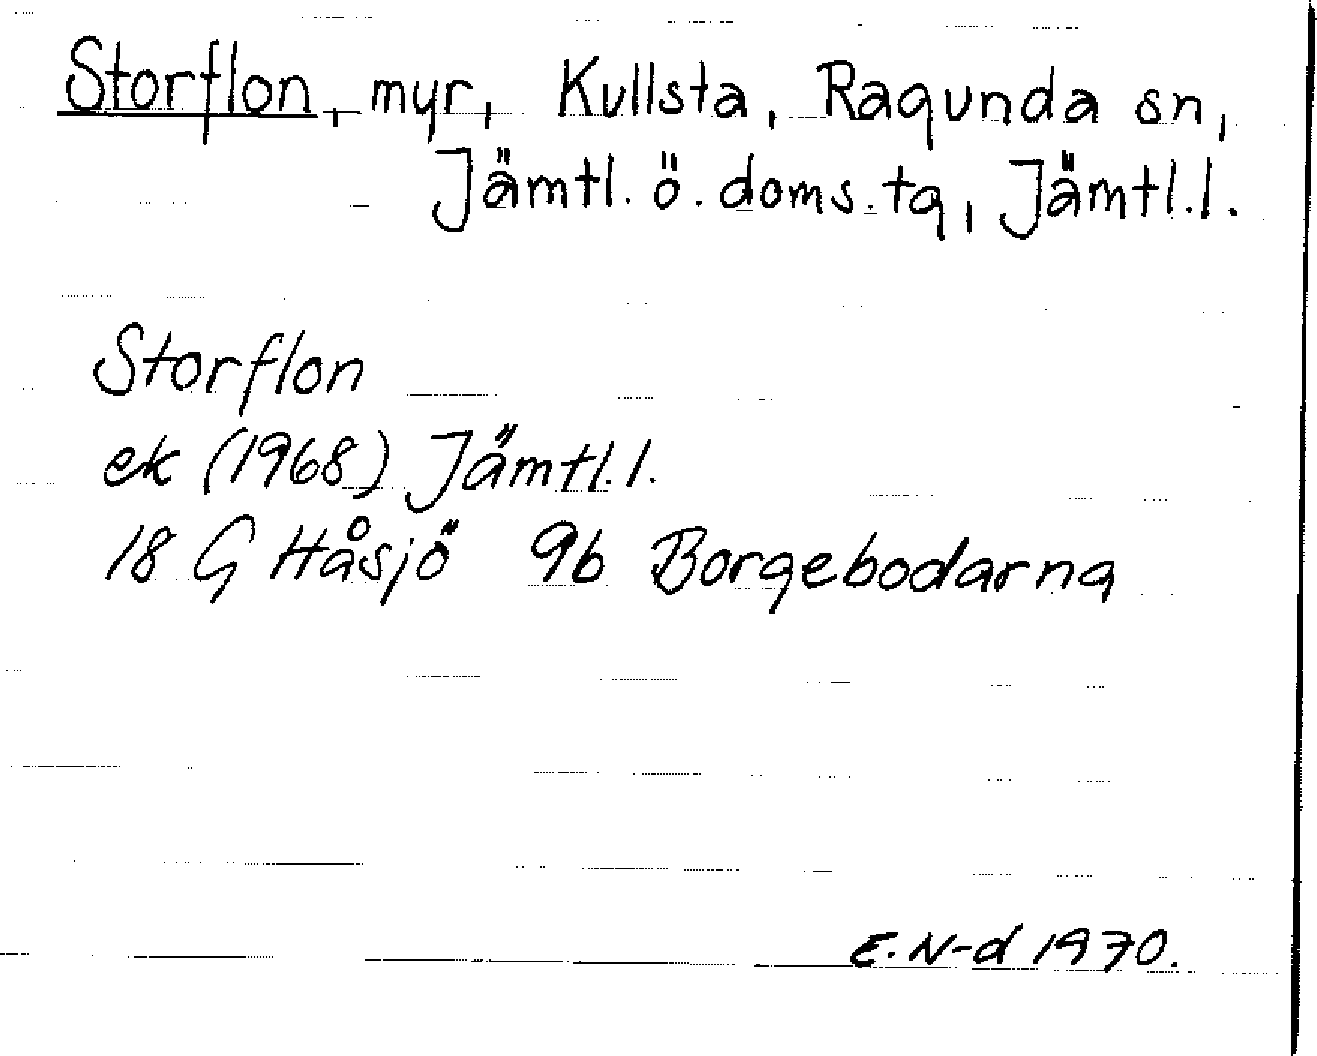 Storflon, myr, Kullsta, Ragunda sn,
Jämtl. ö. doms. tg, Jämtl. l.
Storflon
ek (1968) Jämtl. l.
18 G Håsjö 9b Borgebodarna
E. N-d 1970.